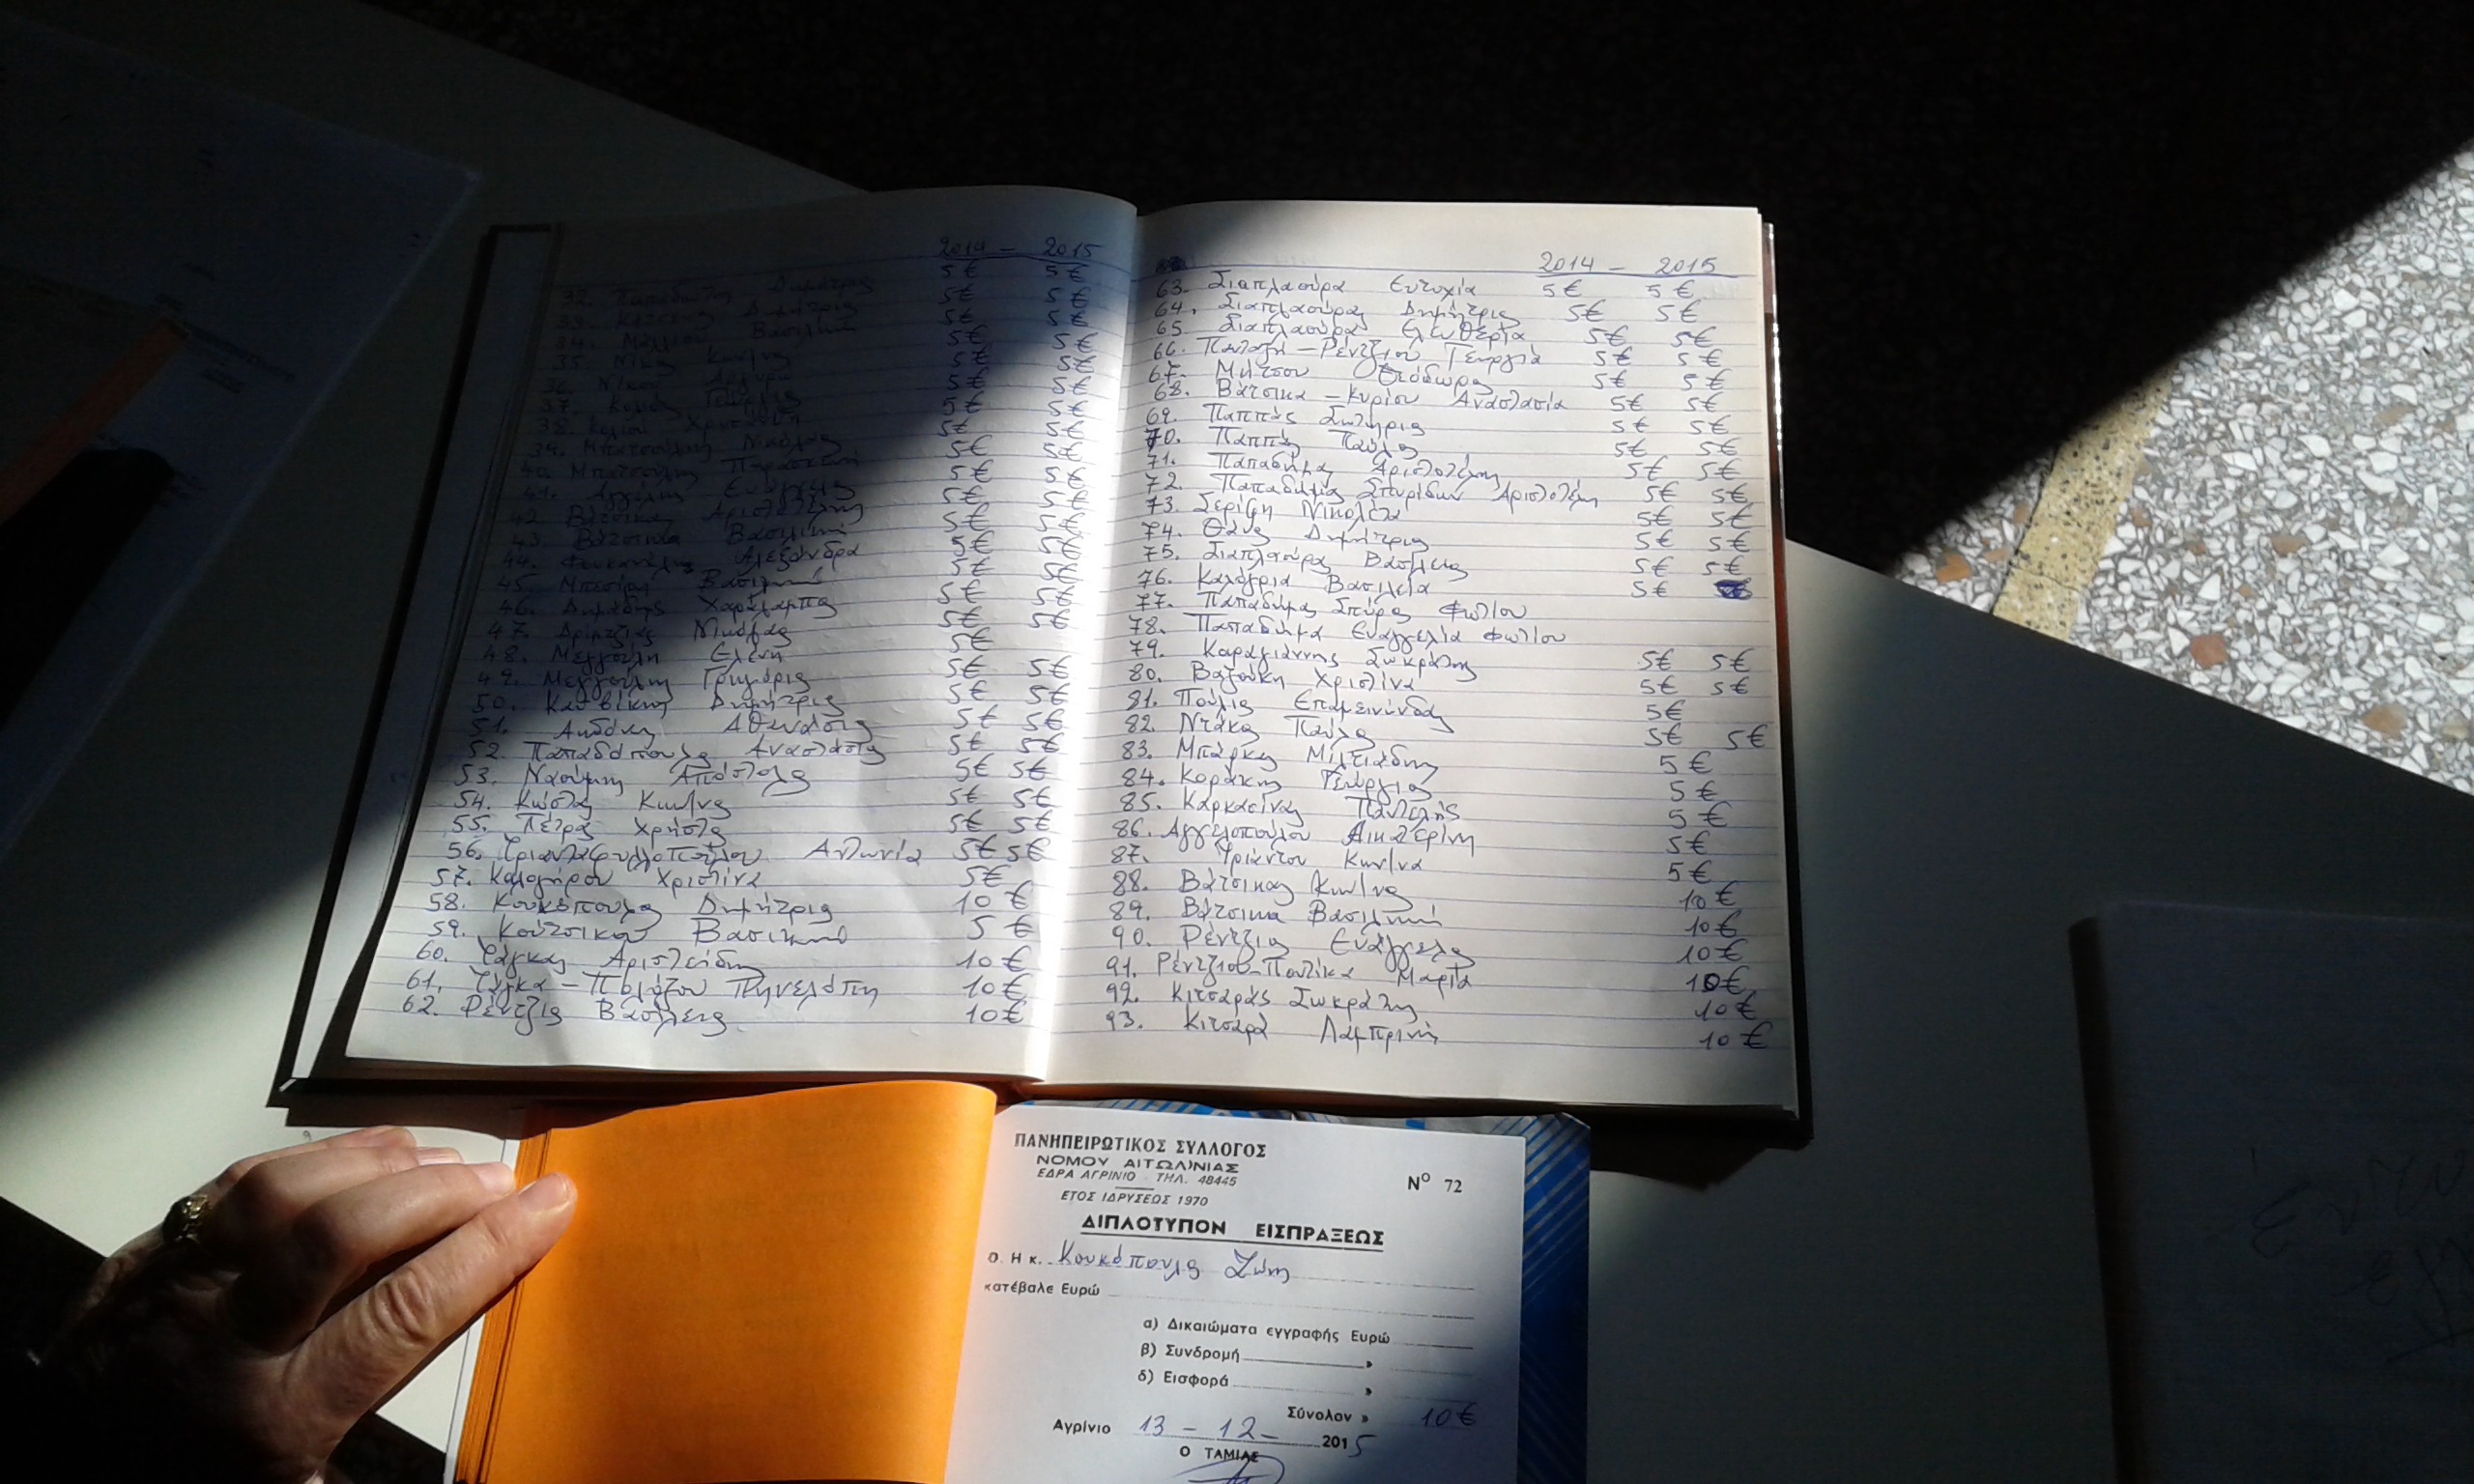 2014 — 2015
5€ 5€
32. Παπαδιώτης Δημήτρης 5€ 5€
33. Δημήτρης 5€ 5€
34. Βασιλική 5€ 5€
35. Νίκου Κων/νος 5€ 5€
36. Νίκου 5€ 5€
37. Γεώργιος 5€ 5€
38. 5€ 5€
39. Μπατσούλης Νικόλαος 5€ 5€
40. Μπατσούλη 5€ 5€
41. Αγγέλης Ευάγγελος 5€ 5€
42. Βάτσικας Αριστοτέλης 5€ 5€
43. Βάτσικα Βασιλική 5€ 5€
44. Αλεξάνδρα 5€ 5€
45. Βασιλική 5€ 5€
46. Δημάδης Χαράλαμπος 5€ 5€
47. Νικόλαος 5€
48. Μεγγούλη Ελένη 5€ 5€
49. Μεγγούλης Γρηγόρης 5€ 5€
50. Δημήτρης 5€ 5€
51. Αηδόνης Αθανάσιος 5€ 5€
52. Παπαδόπουλος Αναστάσιος 5€ 5€
53. Ναούμης Απόστολος 5€ 5€
54. Κώστας Κων/νος 5€ 5€
55. Πέτρος Χρήστος 5€ 5€
56. Τριανταφυλλοπούλου Αντωνία 5€ 5€
57. Καλογήρου Χριστίνα 5€
58. Κουκόπουλος Δημήτρης 10€
59. Κούτσικου Βασιλική 5€
60. Τάγκας Αριστείδης 10€
61. Τάγκα – Πολύζου Πηνελόπη 10€
62. Ρέντζις Βασίλειος 10€
2014 — 2015
63. Σιαπλαούρα Ευτυχία 5€ 5€
64. Σιαπλαούρας Δημήτρης 5€ 5€
65. Σιαπλαούρα Ελευθερία 5€ 5€
66. Παταγή – Ρέντζιου Γεωργία 5€ 5€
67. Μήτσου Θεόδωρος 5€ 5€
68. Βάτσικα – Κυρίου Αναστασία 5€ 5€
69. Παππάς Σωτήρης 5€ 5€
70. Παππάς Παύλος 5€ 5€
71. Παπαδήμας Αριστοτέλης 5€ 5€
72. Παπαδήμας Σπυρίδων Αριστοτέλη 5€ 5€
73. Σερίφη Νικολέτα 5€ 5€
74. Θάνος Δημήτρης 5€ 5€
75. Σιαπλαούρας Βασίλειος 5€ 5€
76. Καλόγρια Βασιλεία 5€
77. Παπαδήμας Σπύρος Φωτίου
78. Παπαδήμα Ευαγγελία Φωτίου
79. Καραγιάννης Σωκράτης 5€ 5€
80. Βαζούκη Χριστίνα 5€ 5€
81. Πούλιος Επαμεινώνδας 5€
82. Ντάκος Παύλος 5€ 5€
83. Μπάρκας Μιλτιάδης 5€
84. Κοράκης Γεώργιος 5€
85. Καρκασίνας Παντελής 5€
86. Αγγελοπούλου Αικατερίνη 5€
87. Υφαντού Κων/να 5€
88. Βάτσικας Κων/νος 10€
89. Βάτσικα Βασιλική 10€
90. Ρέντζιος Ευάγγελος 10€
91. Ρέντζιου-Ποντίκα Μαρία 10€
92. Κιτσαράς Σωκράτης 10€
93. Κιτσαρά Λαμπρινή 10€
ΠΑΝΗΠΕΙΡΩΤΙΚΟΣ ΣΥΛΛΟΓΟΣ
ΝΟΜΟΥ ΑΙΤΩΛ/ΝΙΑΣ
ΕΔΡΑ ΑΓΡΙΝΙΟ - ΤΗΛ. 48445
Νο 72
ΕΤΟΣ ΙΔΡΥΣΕΩΣ 1970
ΔΙΠΛΟΤΥΠΟΝ ΕΙΣΠΡΑΞΕΩΣ
Ο. Η κ. Κουκόπουλος Ζώης
κατέβαλε Ευρώ
α) Δικαιώματα εγγραφής Ευρώ
β) Συνδρομή »
δ) Εισφορά »
Σύνολον » 10€
Αγρίνιο 13 – 12 – 2015
Ο ΤΑΜΙΑΣ